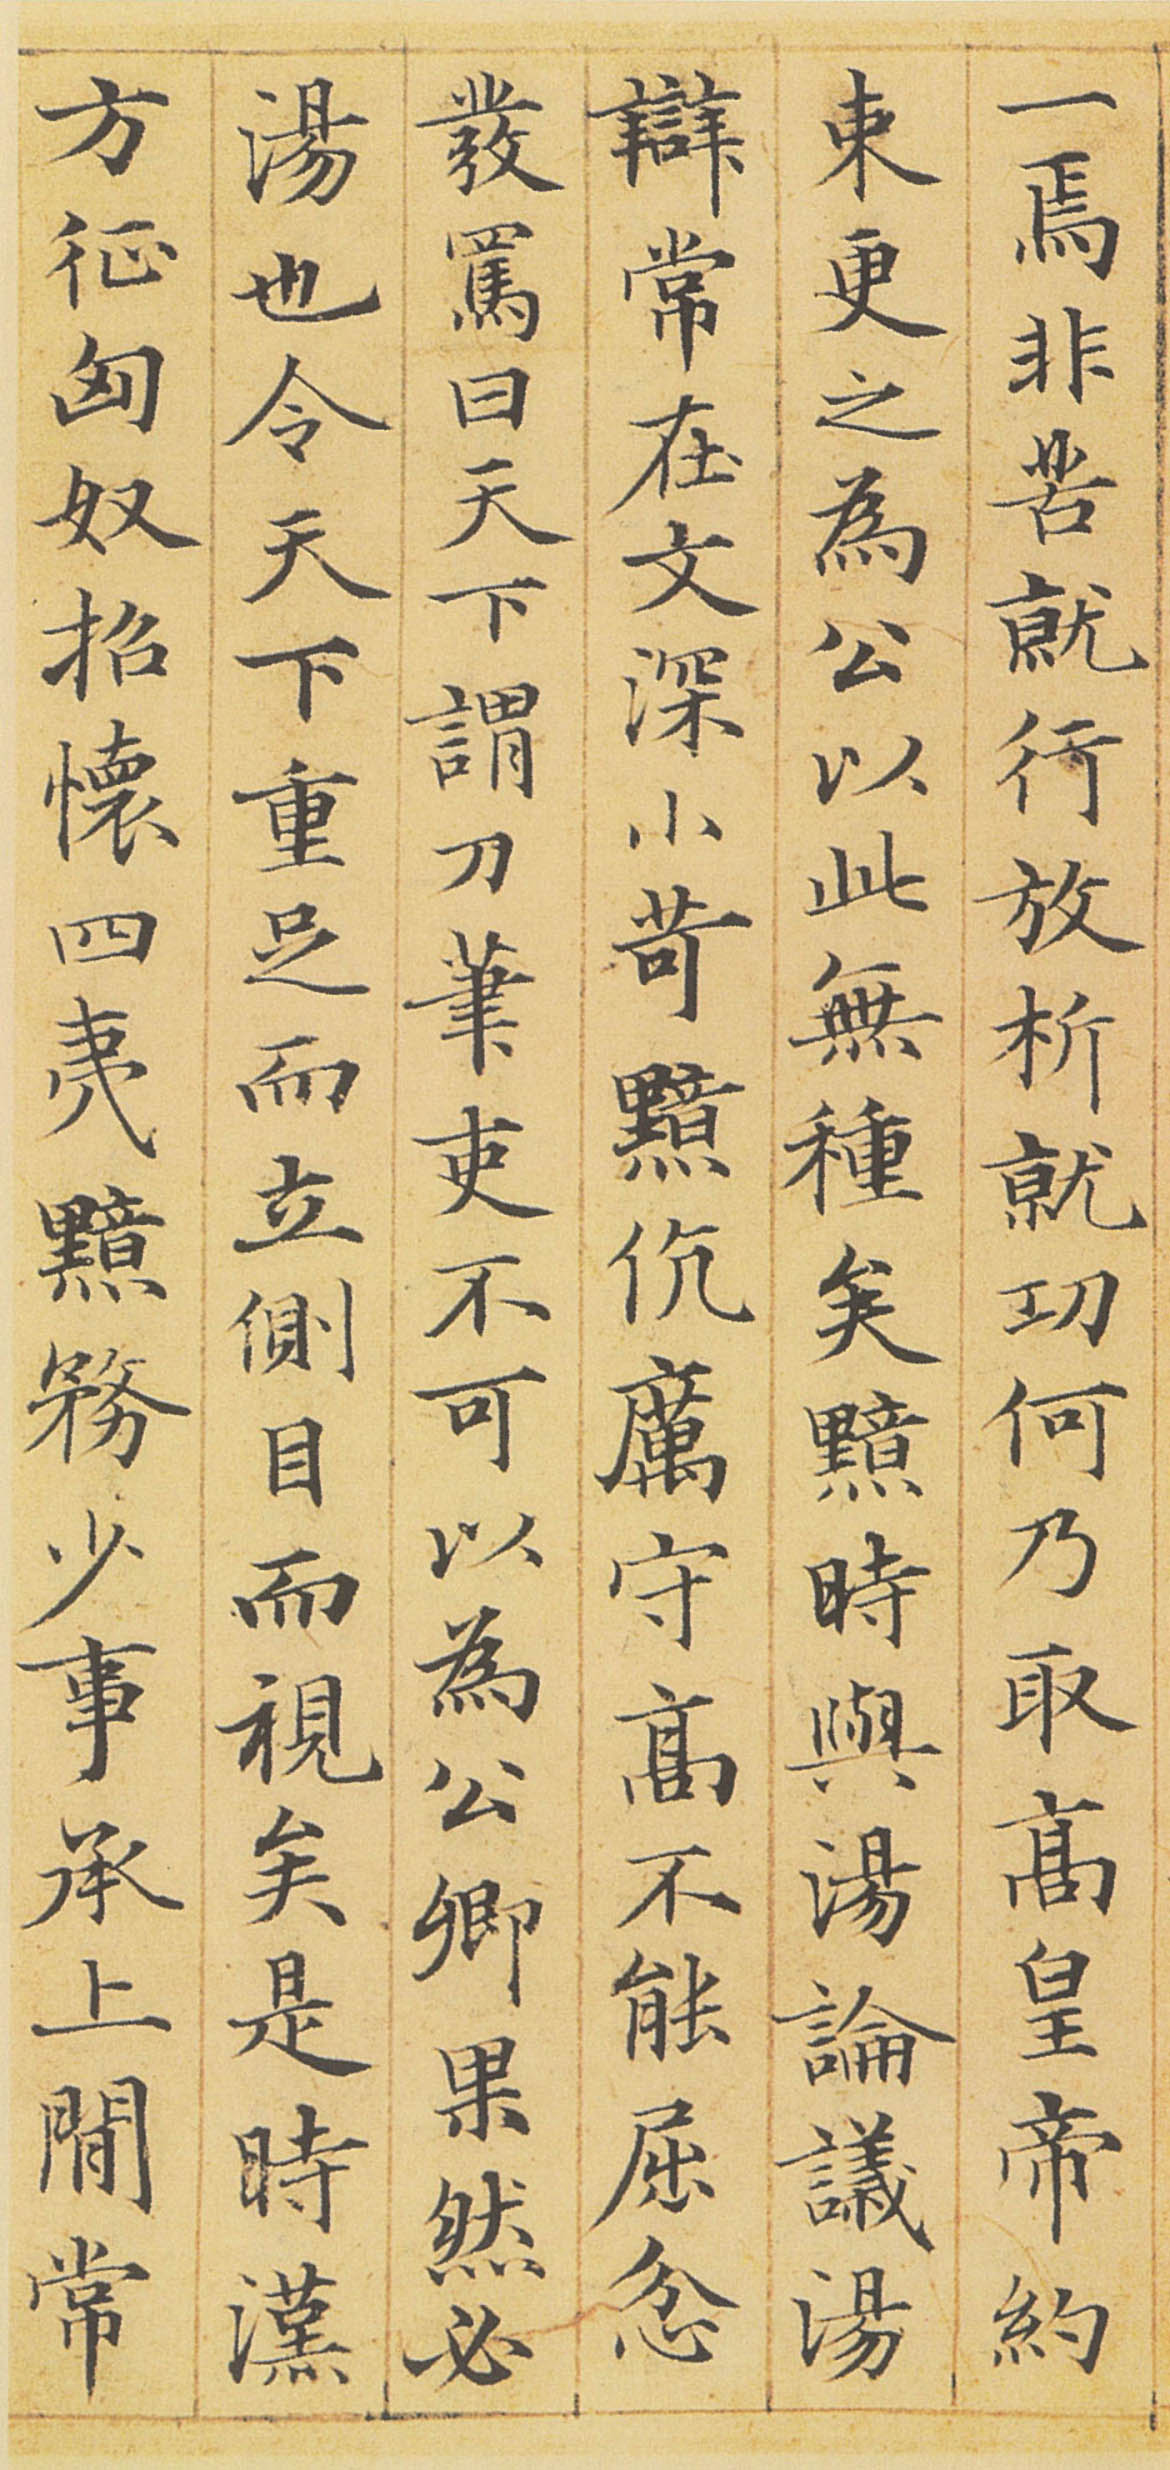 一焉非苦就行放析就功何乃取髙皇帝約
束更之為公以此無種矣黯時與湯論議湯
辯常在文深小苛黯伉厲守髙不能屈忿
發罵曰天下謂刀筆吏不可以為公卿果然必
湯也令天下重足而立側目而視矣是時漢
方征匈奴招懷四夷黯務少事承上間常